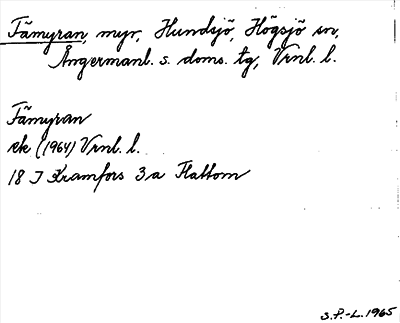 Fämyran, myr, Hundsjö, Högsjö sn,
Ångermanl. s. doms. tg, Vrnl. l.
Fämyran
ek (1964) Vrnl. l.
18 I Kramfors 3a Flattom
S.P.-L. 1965